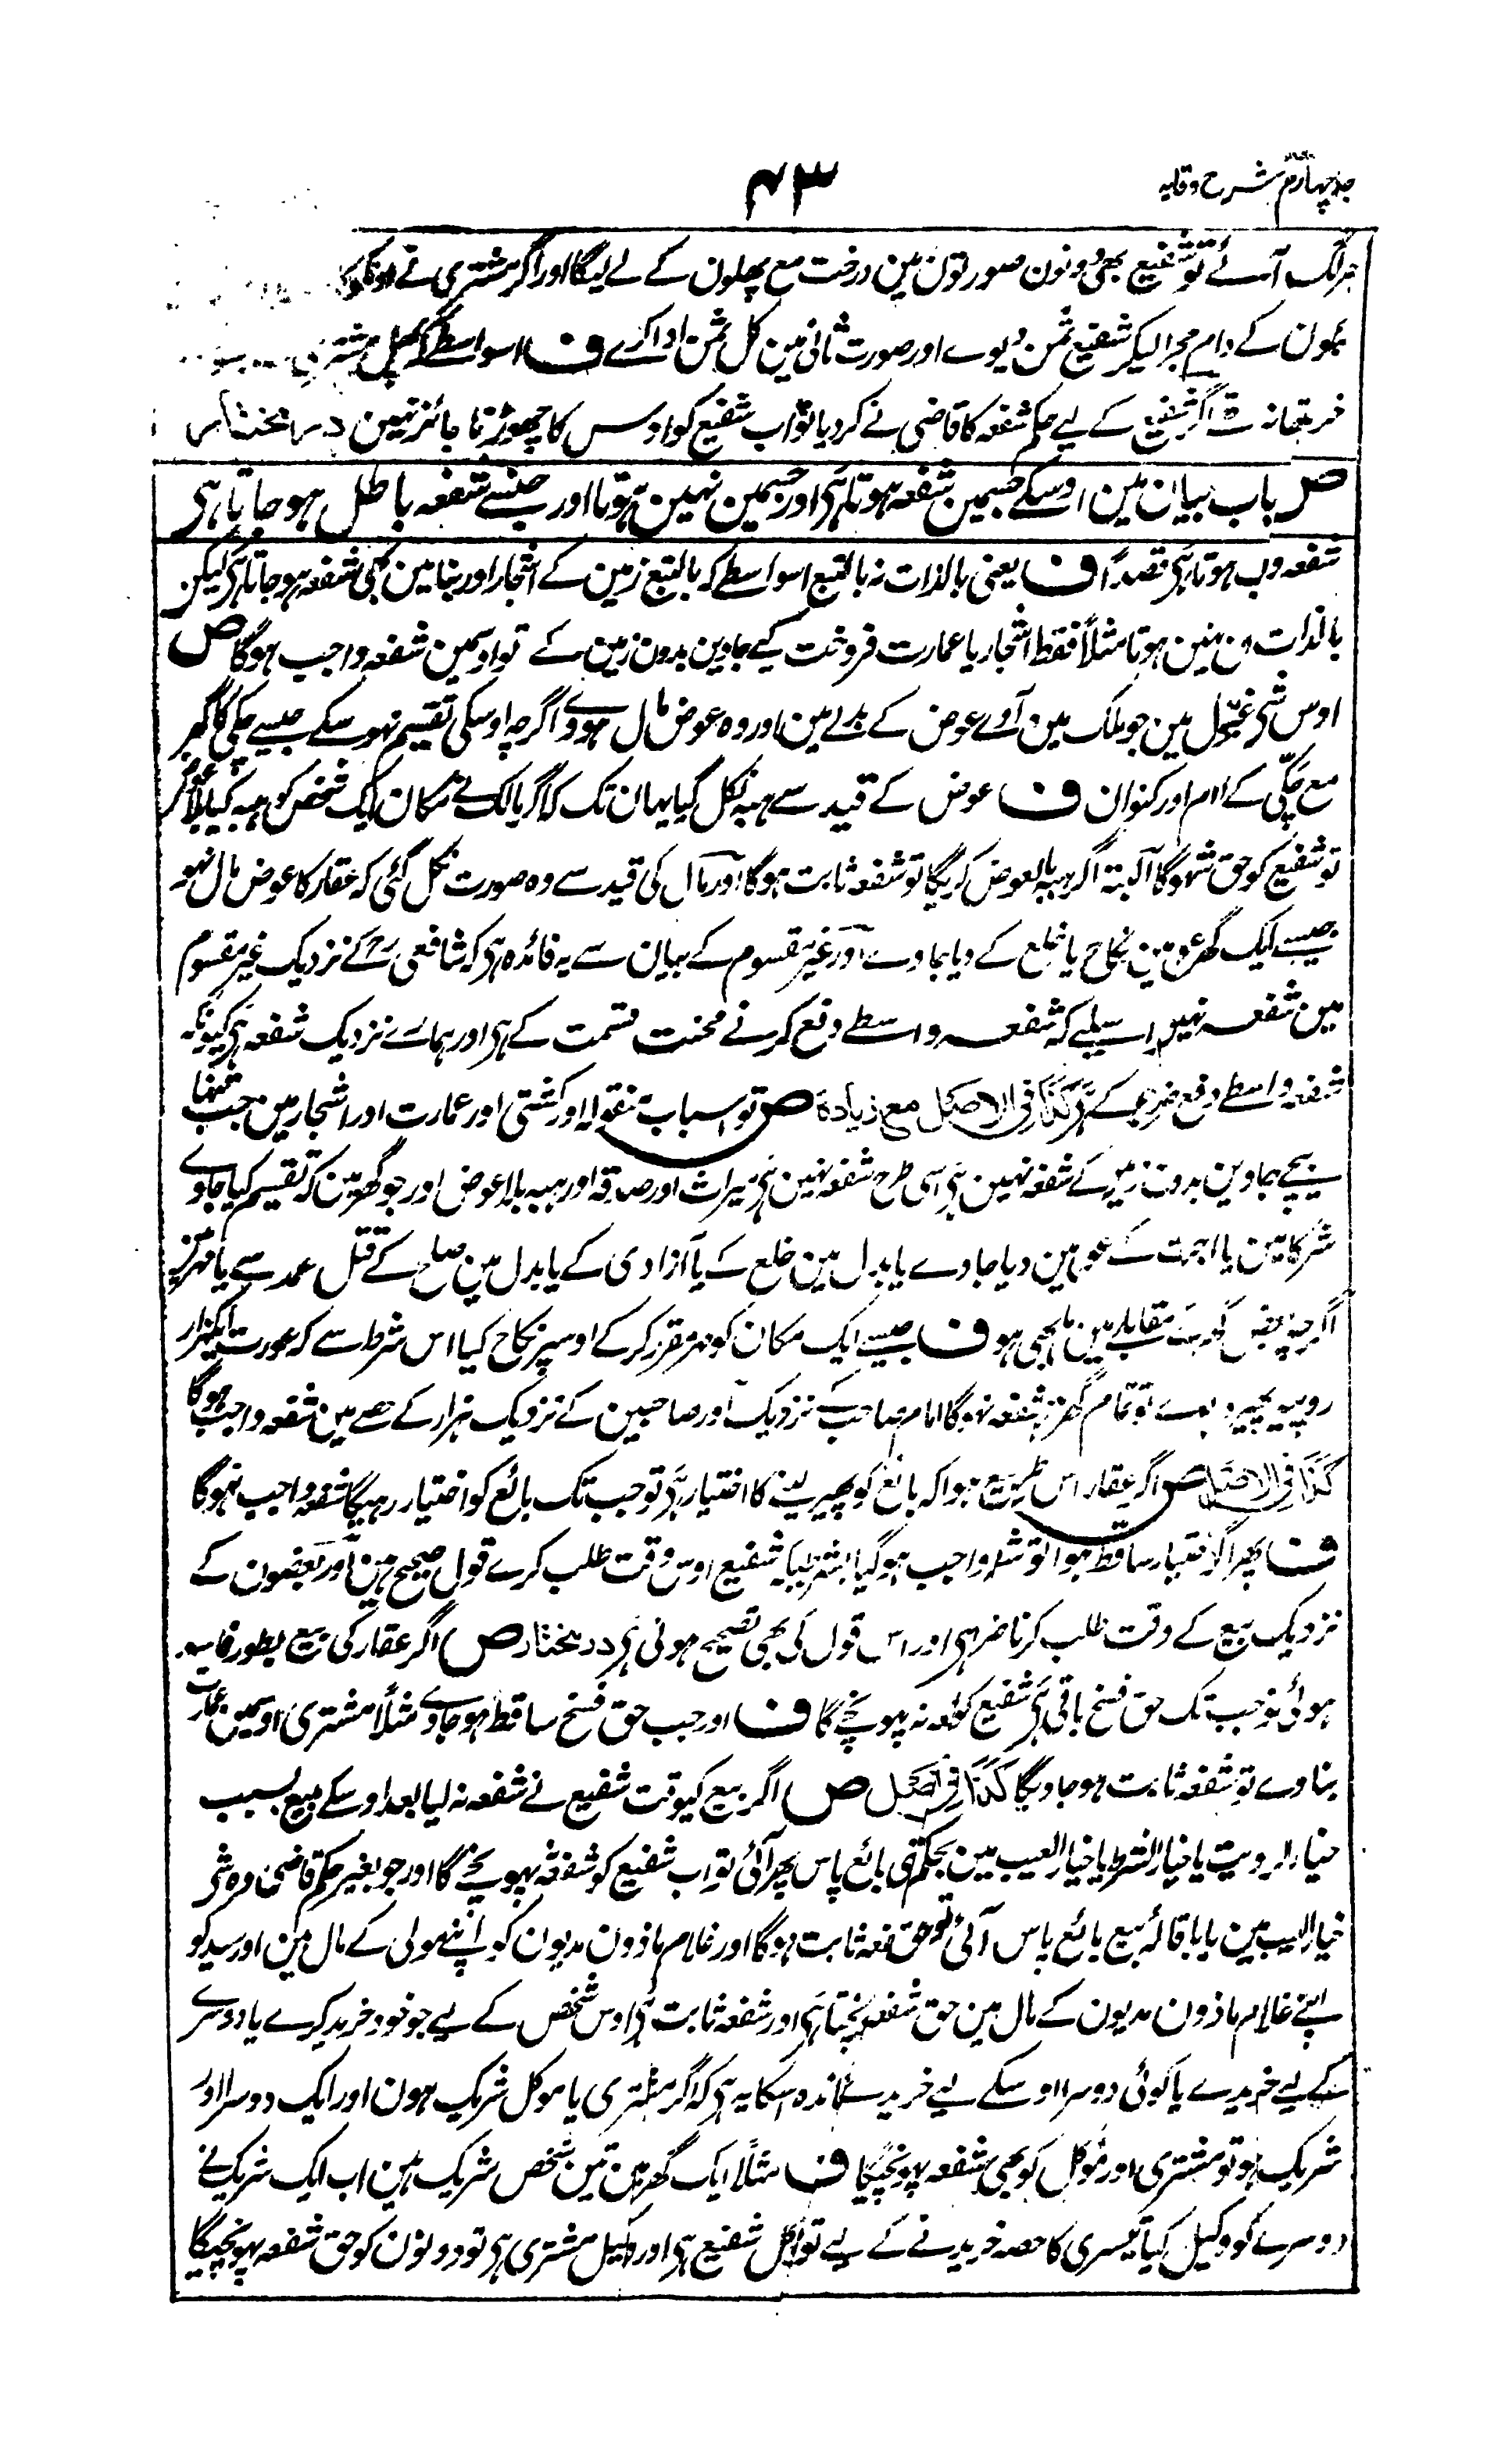 جلد چہارم شرح وقایہ
۴۳
آئے تو شفیع بھی دونون صورتون مین درخت مع پھلون کے لے لیگا اور اگر مشتری نے
کے دام مجرا لیکر شفیع ثمن دیوے اور صورت ثانی مین کل ثمن ادا کرے ف اسواسطے کہ پھل مشتری
اگر شفیع کے لیے حکم شفعہ کا قاضی نے کر دیا تو اب شفیع کو اوس کا چھوڑنا جائز نہین در مختار
ص باب بیان مین اوسکے جسمین شفعہ ہوتا ہی اور جسمین نہین ہوتا اور جسسے شفعہ باطل ہو جاتا ہی
شفعہ وب ہوتا ہی قصداً ف یعنی بالذات نہ بالتبع اسواسطے کہ بالتبع زمین کے اشجار اور بنا مین بھی شفعہ ہو جاتا ہی لیکن
بالذات ون نہین ہوتا مثلاً فقط اشجار یا عمارت فروخت کیے جاوین بدون زمین کے تو اوسمین شفعہ واجب ہوگا ص
اوس شی غیر منقول مین جو ملک مین آوے عوض کے بدلے مین اور وہ عوض مال ہووے اگرچہ اوسکی تقسیم نہو سکے جیسے چکی کا گھر
مع چکی کے اور کنوان ف عوض کے قید سے ہبہ نکل گیا یہان تک کہ اگر مالک نے مکان ایک شخص کو ہبہ کیا
تو شفیع کو حق نہوگا البتہ اگر ہبہ بالعوض کریگا تو شفعہ ثابت ہوگا اور مال کی قید سے وہ صورت نکل گئی کہ عقار کا عوض مال نہو
جیسے ایک گھر عوض مین نکاح یا خلع کے دیا جاوے اور غیر مقسوم کے بیان سے یہ فائدہ ہی کہ شافعی رح کے نزدیک غیر مقسوم
مین شفعہ نہین اسیلیے کہ شفعہ واسطے دفع کرنے محنت قسمت کے ہی اور ہمارے نزدیک شفعہ ہی کیونکہ
شفعہ واسطے دفع ضرر کے ہی کذا فی الاصل مع زیادة ص تو اسباب منقولہ اور کشتی اور عمارت اور اشجار مین جب تنہا
بیچے جاوین بدون زمین کے شفعہ نہین ہی اسی طرح شفعہ نہین ہی میراث اور صدقہ اور ہبہ بلا عوض اور جو گھر کہ تقسیم کیا جاوے
شرکا مین یا اجرت کے عوض مین دیا جاوے یا بدل مین خلع کے یا آزادی کے یا بدل مین صلح کے قتل عمد سے یا مہر مین
اگرچہ بعض گھر کے مقابلہ مین مال بھی ہو ف جیسے ایک مکان کو مہر مقرر کر کے اوسپر نکاح کیا اس شرط سے کہ عورت ایکہزار
روپیہ پھیر دیوے تو تمام گھر مین شفعہ نہوگا امام صاحب کے نزدیک اور صاحبین کے نزدیک ہزار کے حصے مین شفعہ واجب ہوگا
کذا فی الاصل ص اگر عقار اس طرح بیع ہوا کہ بائع کو پھیر لینے کا اختیار ہی تو جب تک بائع کو اختیار رہیگا شفعہ واجب نہوگا
ف پھر اگر اختیار ساقط ہوا تو شفعہ واجب ہو گیا بشرطیکہ شفیع اوس وقت طلب کرے قول صحیح مین اور بعضون کے
نزدیک بیع کے وقت طلب کرنا ضرور ہی اور اس قول کی بھی تصحیح ہوئی ہی در مختار ص اگر عقار کی بیع بطور فاسد
ہوئی تو جب تک حق فسخ باقی ہی شفیع کو شفعہ نہ پہونچے گا ف اور جب حق فسخ ساقط ہو جاوے مثلاً مشتری اوسمین عمارت
بناوے تو شفعہ ثابت ہو جاویگا کذا فی الاصل ص اگر بیع کیوقت شفیع نے شفعہ نہ لیا بعد اوسکے بیع بسبب
خیار الرویت یا خیار الشرط یا خیار العیب مین بحکم قاضی بائع پاس پھر آئی تو اب شفیع کو شفعہ نہ پہونچے گا اور جو بغیر حکم قاضی وہ شی
خیار العیب مین یا باقالہ بیع بائع پاس آئی تو حق شفعہ ثابت ہوگا اور غلام ماذون مدیون کو اپنے مولی کے مال مین اور سید کو
اپنے غلام ماذون مدیون کے مال مین حق شفعہ پہنچتا ہی اور شفعہ ثابت ہی اوس شخص کے لیے جو خود خرید کرے یا دوسرے
کے لیے خریدے یا کوئی دوسرا اوسکے لیے خریدے فائدہ اسکا یہ ہی کہ اگر مشتری یا موکل شریک ہون اور ایک دوسرا اور
شریک ہو تو مشتری اور موکل کو بھی شفعہ پہونچیگا ف مثلاً ایک گھر مین تین شخص شریک ہین اب ایک شریک نے
دوسرے کو وکیل کیا تیسری کا حصہ خریدنے کے لیے تو موکل شفیع ہی اور وکیل مشتری ہی تو دونون کو حق شفعہ پہونچیگا